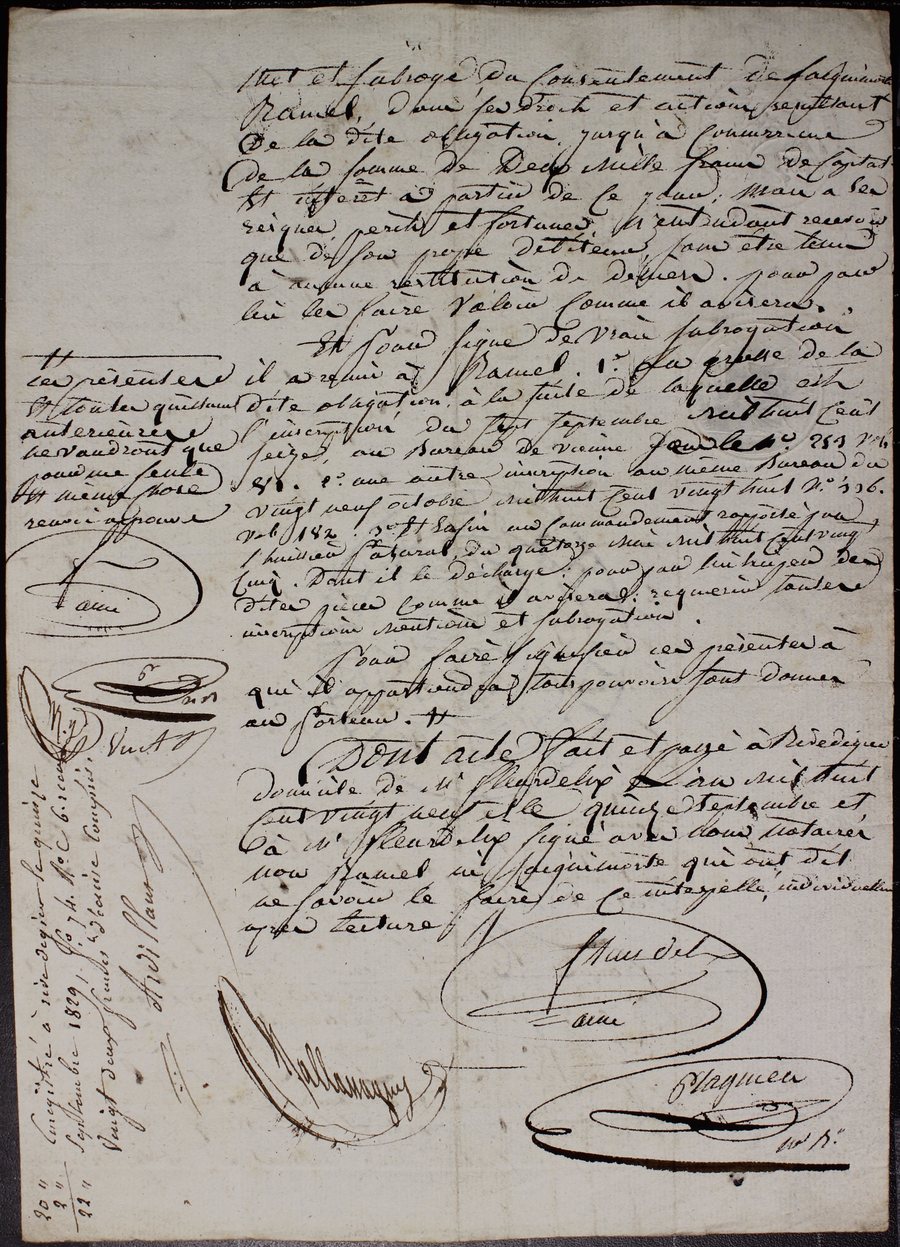 met et subroge du consentement de Jacquimorte
Ramel, dans ses droits et actions resultant
De la dite obligation, jusqu'à concurrence
de la somme de Deux Mille francs de capital
et interêt à partir de ce jour, mais a ses
risques perils et fortunes, N'entendant recevoir
que de son propre debiteur sans être tenu
à aucune restitution de deniers. pour par
lui les faire valoir comme il avisera.
Et pour signe de vraie subrogation
il a remis à Ramel. 1.º La grosse de la
dite obligation, à la suite de laquelle est
l'inscription du sept septembre mil huit cent
seize, au Bureau de vienne N.º 251 Vol.
2.º une autre inscription au même Bureau du
vingt neuf octobre mil huit cent vingt huit N.º 336.
Vol. 182. 3.º Et Enfin un commandement rapporté par
l'huissier du quatorze Mai mil huit cent vingt
Cinq. Dont il le décharge; pour par lui user des
dites pièces comme il avisera; requerir toutes
inscriptions mentions et subrogation.
Pour faire signifier ces présentes à
qui il appartiendra tous pouvoirs sont donnés
au porteur. #
Dont acte, fait et passé à Rivedegier
domicile de M.r fleurdelix L'an mil huit
cent vingt neuf et le quinze septembre et
à M.r fleurdelix signé avec nous notaires
non Ramel ni Jacquimorte qui ont dit
ne savoir le faire de ce interpellé individuellement
apres lecture
#
ces présentes
Et toutes quittances
anterieures
ne vaudront que
pour une seule
Et même chose
renvoi approuvé
ainé
Enregistré à rivedegier le quinze
Septembre 1829, f.º 74. R.º C. 6. reçu
Vingt deux francs dixaine compris.
Ardillon
20 "
2 "
22 "
fleurdelix
ainé
Plagnieu
n.re R.al